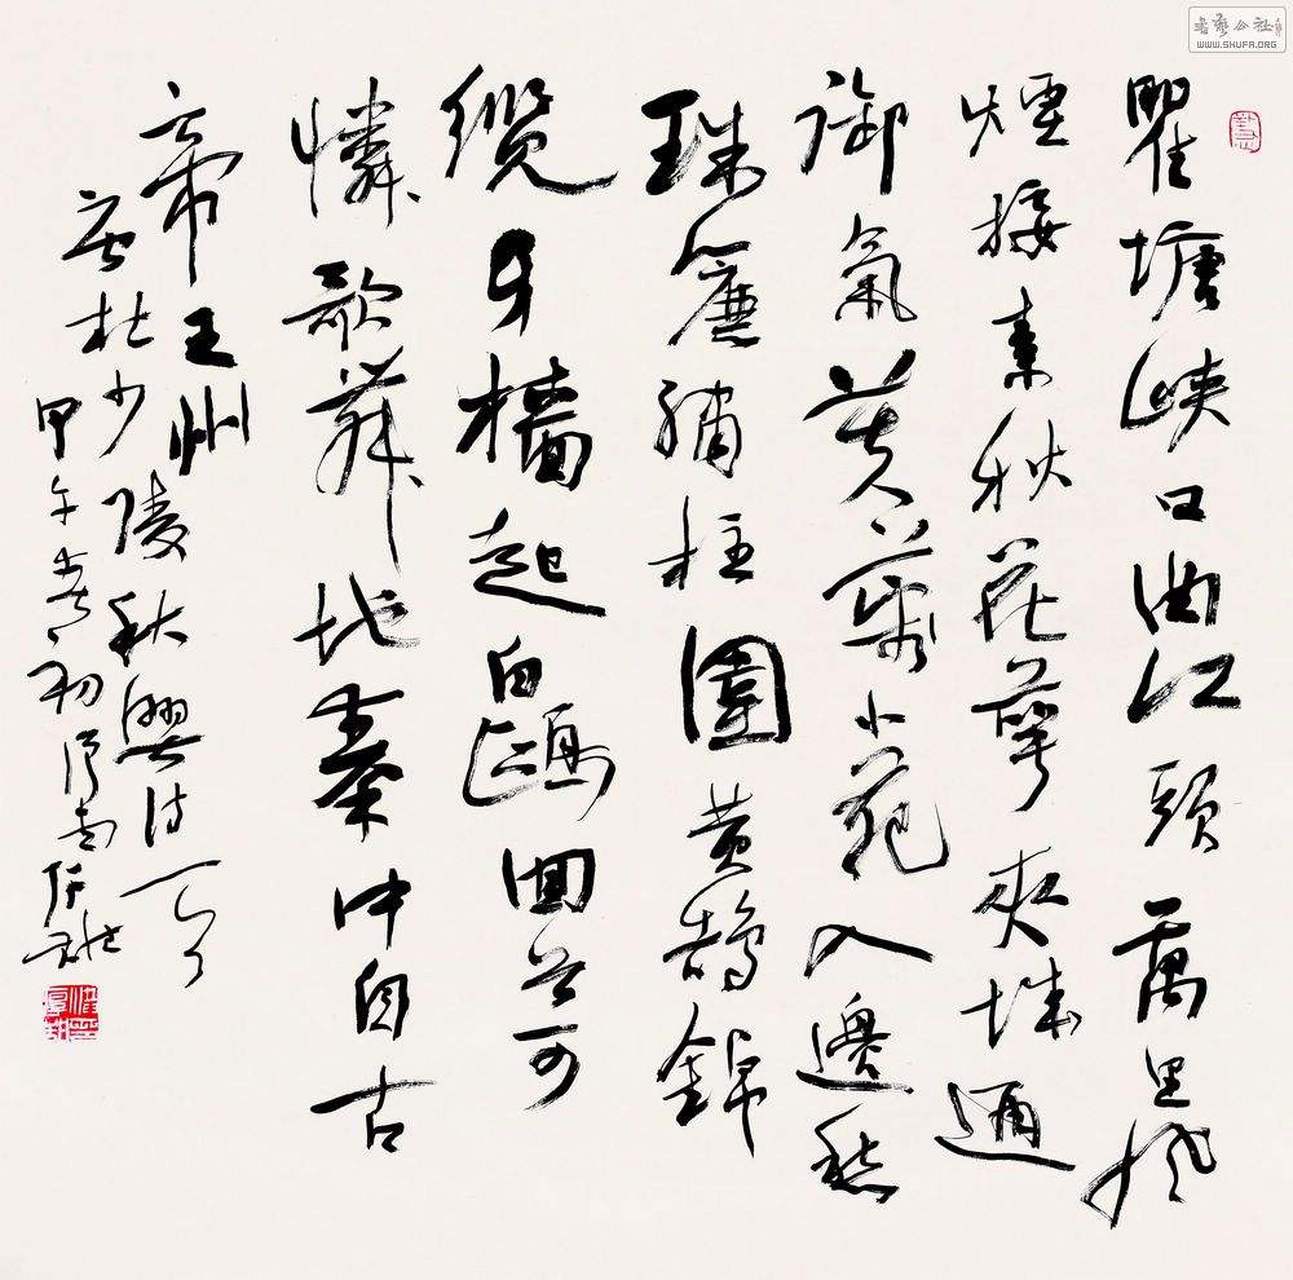 瞿塘峽口曲江頭萬里風
煙接素秋花萼夾城通
御氣芙蓉小苑入邊愁
珠簾繡柱圍黃鵠錦
纜牙檣起白鷗回首可
憐歌舞地秦中自古
帝王州
唐杜少陵秋興詩一首
甲午春初
書藝公社
WWW.SHUFA.ORG